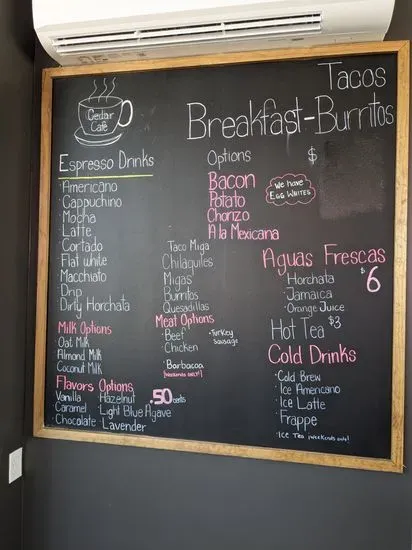 Cedar
Café
Tacos
Breakfast-Burritos
Espresso Drinks
· Americano
· Cappuchino
· Mocha
· Latte
· Cortado
· Flat white
· Macchiato
· Drip
· Dirty Horchata
Milk Options
· Oat Milk
· Almond Milk
· Coconut Milk
Flavors Options .50 cents
· Vanilla · Hazelnut
· Caramel · Light Blue Agave
· Chocolate · Lavender
Options $
Bacon
Potato
Chorizo
A la Mexicana
We have
EGG WHITES
Taco Miga
Chilaquiles
Migas
Burritos
Quesadillas
Meat Options
· Beef · Turkey
Sausage
· Chicken
· Barbacoa
(weekends only!)
Aguas Frescas
$6
· Horchata
· Jamaica
· Orange Juice
Hot Tea $3
Cold Drinks
· Cold Brew
· Ice Americano
· Ice Latte
· Frappe
· Ice Tea (weekends only!)